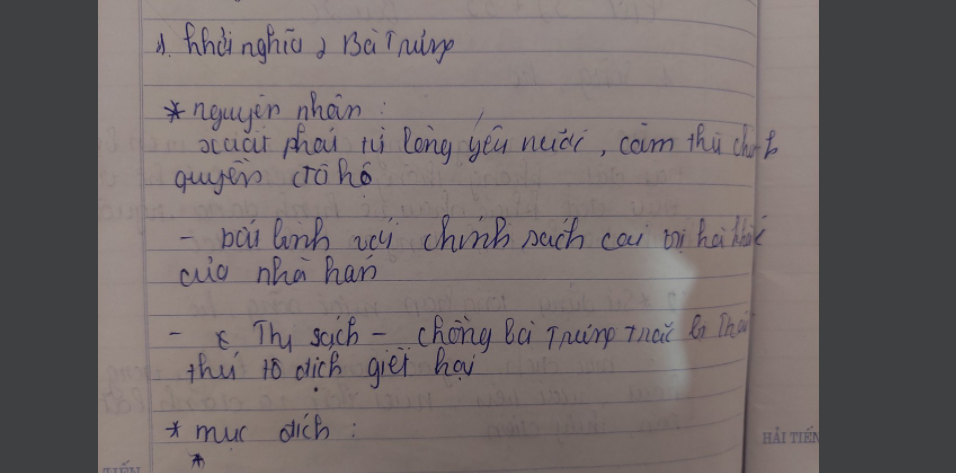 1. khởi nghĩa 2 Bà Trưng
* nguyên nhân :
xuất phát từ lòng yêu nước, căm thù chính
quyền đô hộ
- bất bình với chính sách cai trị hà khắc
của nhà hán
- Thi sách - chồng bà Trưng trắc bị Thái
thú tô định giết hại
* mục đích :
*
HẢI TIẾN
TIẾN